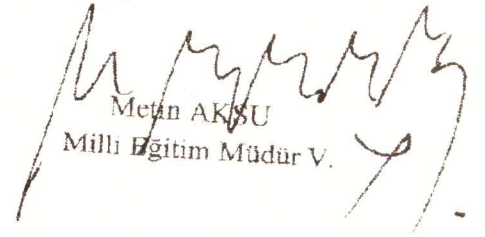 Metin AKSU
Milli Eğitim Müdür V.